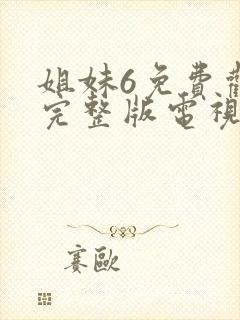 姐妹6免費觀
完整版電視
賽歐